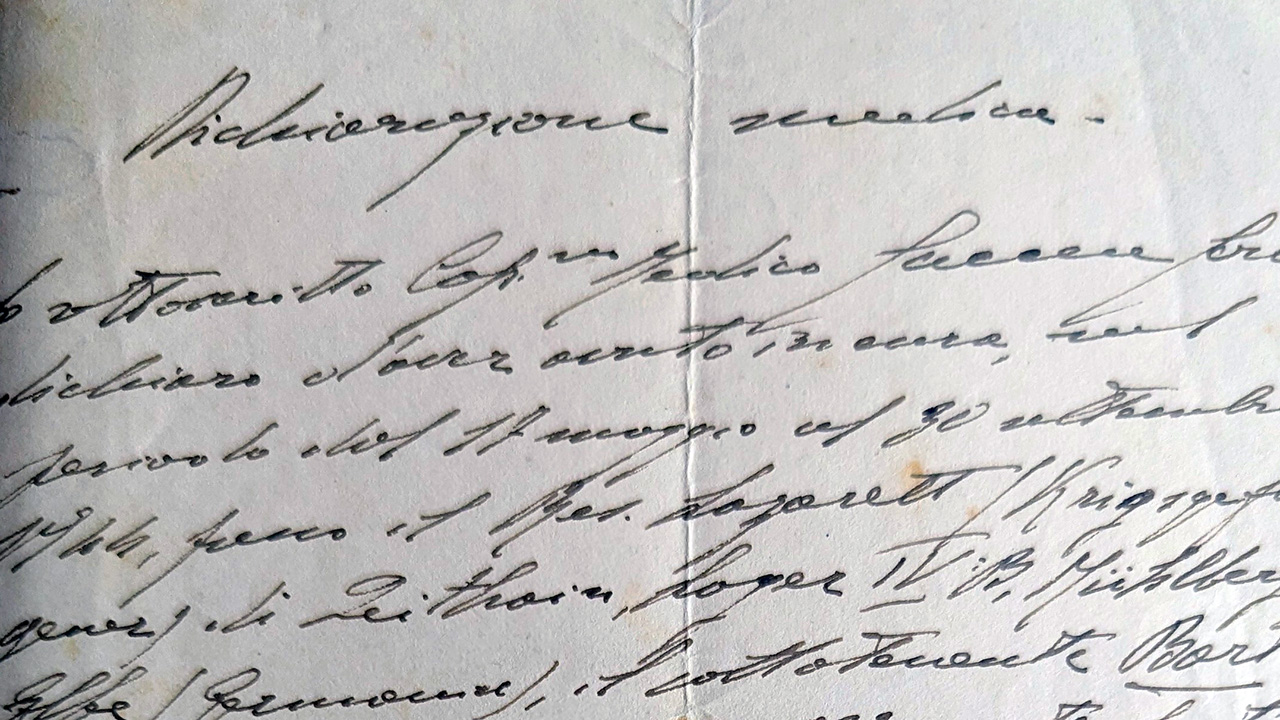 Dichiarazione medica.
Io sottoscritto Cap.no Medico
dichiaro d'aver avuto in cura, nel
periodo dal 17 maggio al 30 settemb
1944, presso il Res. Lazarett (Krigsgef
gener) di Zeithain, Lager IV B, Mühlberg
Elbe (Germania), il sottotenente Bort